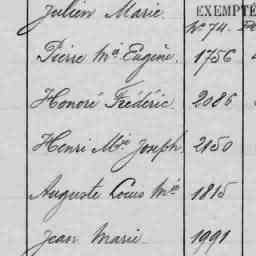 Julien Marie. EXEMPTÉ
N° 74.
Pierre Mie Eugène. 1756
Honoré Frédéric 2086
Henri Mie Joseph 2150
Auguste Louis Mie 1815
Jean Marie 1991